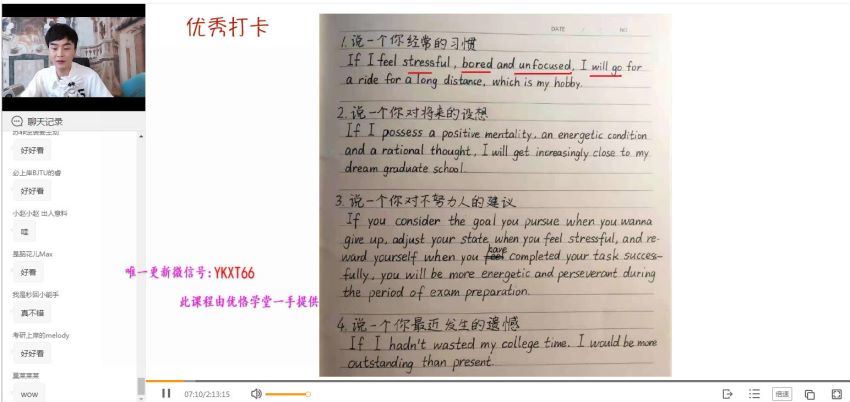 优秀打卡
DATE / / NO
1. 说一个你经常的习惯
If I feel stressful, bored and unfocused, I will go for
a ride for a long distance, which is my hobby.
2. 说一个你对将来的设想
If I possess a positive mentality, an energetic condition
and a rational thought, I will get increasingly close to my
dream graduate school.
3. 说一个你对不努力人的建议
If you consider the goal you pursue when you wanna
give up, adjust your state when you feel stressful, and re-
ward yourself when you have completed your task success-
fully, you will be more energetic and perseverant during
the period of exam preparation.
4. 说一个你最近发生的遗憾
If I hadn't wasted my college time. I would be more
outstanding than present.
聊天记录
好好看
必上岸BJTU的睿
好好看
小赵小赵 出人意料
哇
是茄花儿Max
好看
我是秒回小能手
真不错
考研上岸的melody
好好看
wow
唯一更新微信号:YKXT66
此课程由优恪学堂一手提供
07:10/2:13:15
倍速